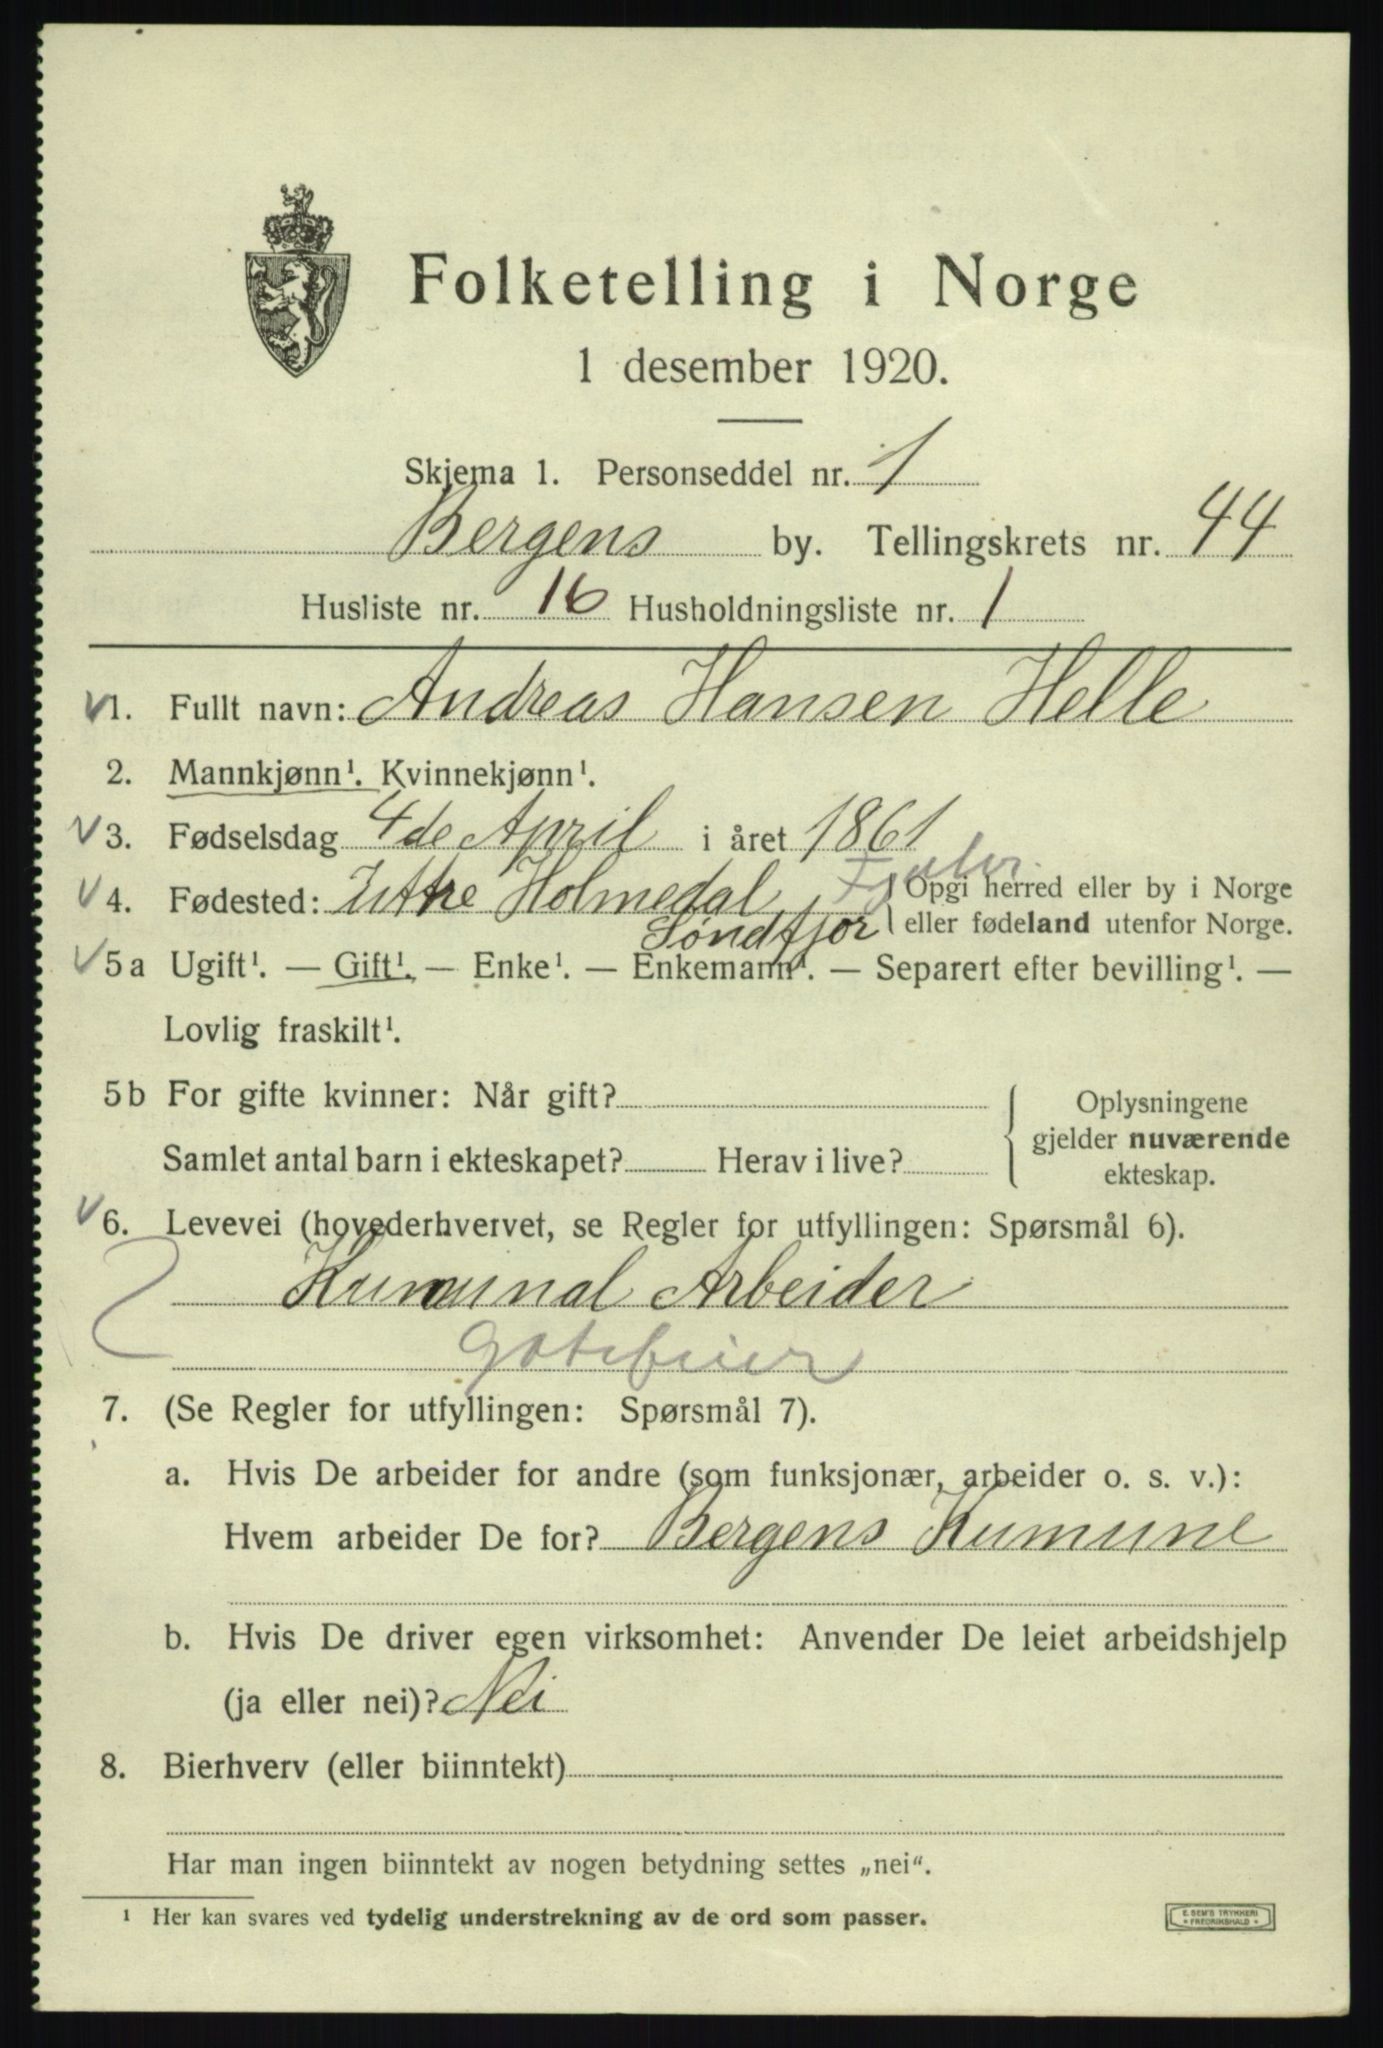 Folketelling i Norge
1 desember 1920.
Skjema 1. Personseddel nr. 1
Bergens by. Tellingskrets nr. 44
Husliste nr. 16 Husholdningsliste nr. 1
1. Fullt navn: Andreas Hansen Helle
2. Mannkjønn¹. Kvinnekjønn¹.
3. Fødselsdag 4de April i året 1861
Fjaler
4. Fødested: Holmedal Opgi herred eller by i Norge
Søndfjor eller fødeland utenfor Norge.
5a Ugift¹. — Gift¹. — Enke¹. — Enkemann¹. — Separert efter bevilling¹. —
Lovlig fraskilt¹.
5b For gifte kvinner: Når gift? Oplysningene
gjelder nuværende
Samlet antal barn i ekteskapet? Herav i live? ekteskap.
6. Levevei (hovederhvervet, se Regler for utfyllingen: Spørsmål 6).
Kumunal Arbeider
7. (Se Regler for utfyllingen: Spørsmål 7).
a. Hvis De arbeider for andre (som funksjonær, arbeider o. s. v.):
Hvem arbeider De for? Bergens Kumune
b. Hvis De driver egen virksomhet: Anvender De leiet arbeidshjelp
(ja eller nei)? Nei
8. Bierhverv (eller biinntekt)
Har man ingen biinntekt av nogen betydning settes „nei“.
¹ Her kan svares ved tydelig understrekning av de ord som passer.
E. SEM'S TRYKKERI
FREDRIKSHALD